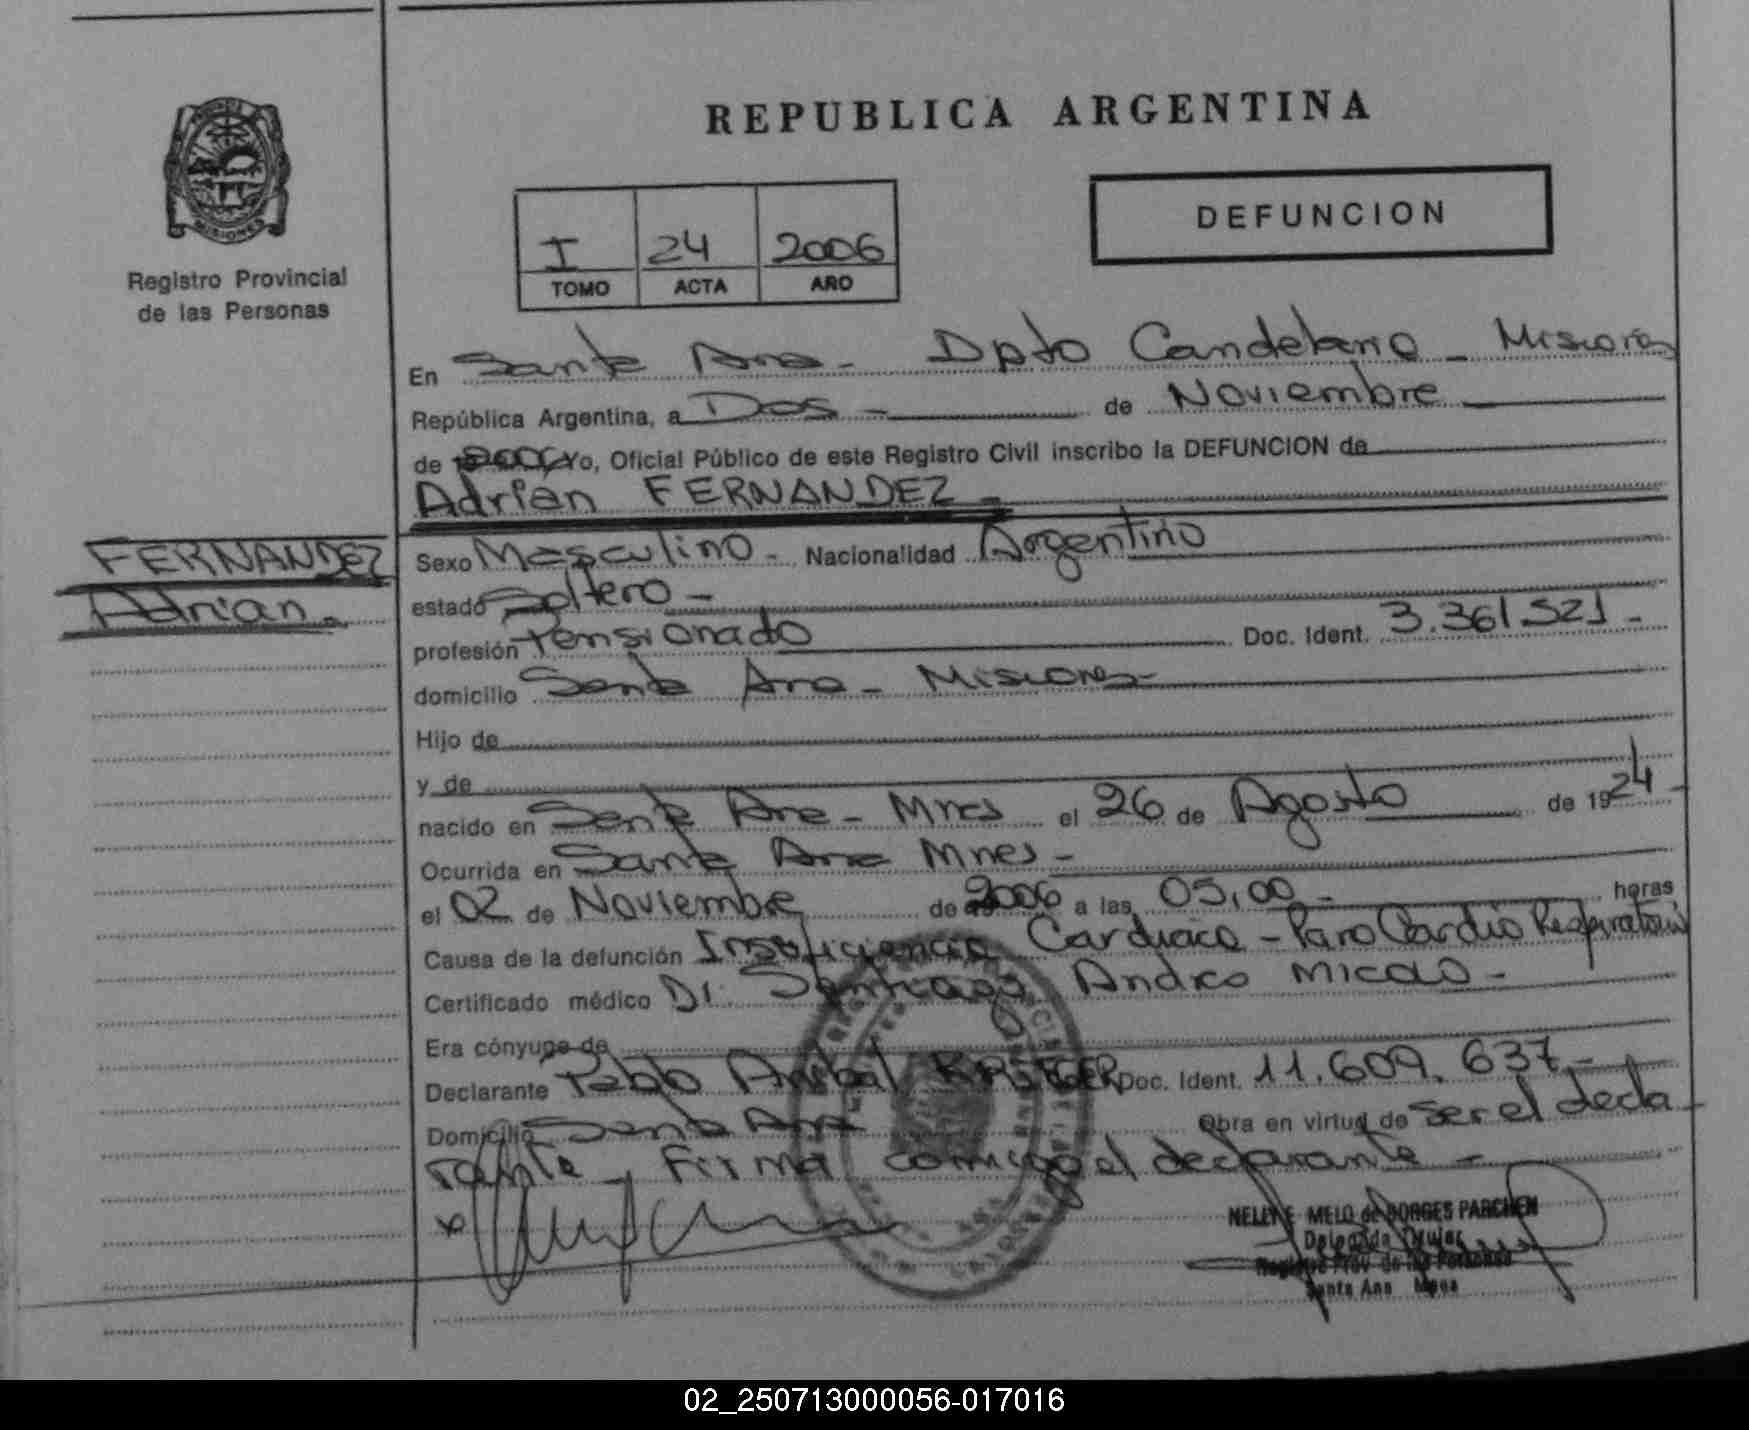 REPUBLICA ARGENTINA
MISIONES
Registro Provincial
de las Personas
I 24 2006
TOMO ACTA AÑO
DEFUNCION
En Santa Ana - Dpto Candelaria - Misiones
República Argentina, a Dos - de Noviembre
de 2006 Yo, Oficial Público de este Registro Civil inscribo la DEFUNCION de
Adrian FERNANDEZ -
FERNANDEZ
Adrian -
Sexo Masculino - Nacionalidad Argentino
estado Soltero -
profesión Pensionado Doc. Ident. 3.361.521 -
domicilio Santa Ana - Misiones -
Hijo de
y de
nacido en Santa Ana - Mnes el 26 de Agosto de 1924 -
Ocurrida en Santa Ana Mnes -
el 02 de Noviembre de 2006 a las 05,00 - horas
Causa de la defunción Insuficiencia Cardiaca - Paro Cardio Respiratorio
Certificado médico Dr. Santiago Andres -
Era cónyuge de
Declarante Pablo Anibal Doc. Ident. 11.609.637 -
Domicilio Santa Ana Obra en virtud de ser el decla
rante - Firma conmigo el declarante -
NELLY E. MELO de BORGES PARCHEN
Delegada Titular
Registro Prov. de las Personas
Santa Ana Mnes
02_250713000056-017016